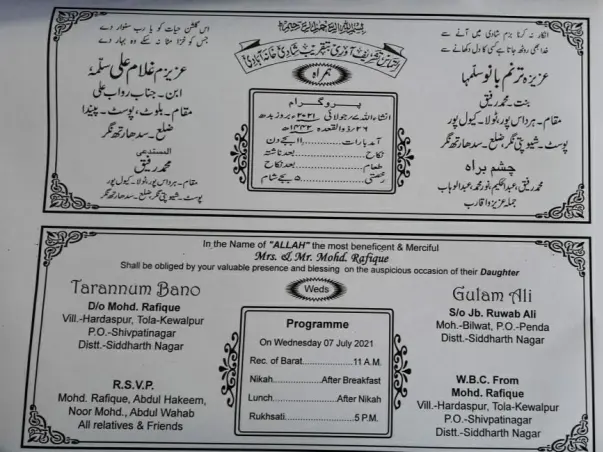 بسم اللہ الرحمن الرحیم
انکار نہ کرنا بزم شادی میں آنے سے
خدا بھی روٹھ جاتا ہے کسی کا دل دکھانے سے
اس گلشن حیات کو یا رب سنوار دے
جس کو خزاں مٹا نہ سکے وہ بہار دے
التماس تشریف آوری بتقریب شادی خانہ آبادی
عزیزہ ترنم بانو سلمہا
بنت۔ محمد رفیق
مقام۔ ہرداس پور، ٹولا۔ کیول پور
پوسٹ۔ شیوپتی نگر، ضلع۔ سدھارتھ نگر
چشم براہ
محمد رفیق، عبدالحکیم، نور محمد، عبدالوہاب
جملہ عزیز و اقارب
ہمراہ
پروگرام
انشاءاللہ ۷ جولائی ۲۰۲۱ء بروز بدھ
۲۶ ذوالقعدہ ۱۴۴۲ھ
آمد بارات ۱۱ بجے دن
نکاح بعد ناشتہ
طعام بعد نکاح
رخصتی ۵ بجے شام
عزیزم غلام علی سلمہٗ
ابن۔ جناب رواب علی
مقام۔ بلوٹ، پوسٹ۔ پیندا
ضلع۔ سدھارتھ نگر
المستدعی
محمد رفیق
مقام۔ ہرداس پور، ٹولا۔ کیول پور
پوسٹ۔ شیوپتی نگر، ضلع۔ سدھارتھ نگر
In the Name of "ALLAH" the most beneficent & Merciful
Mrs. & Mr. Mohd. Rafique
Shall be obliged by your valuable presence and blessing on the auspicious occasion of their Daughter
Tarannum Bano
D/o Mohd. Rafique
Vill.-Hardaspur, Tola-Kewalpur
P.O.-Shivpatinagar
Distt.-Siddharth Nagar
R.S.V.P.
Mohd. Rafique, Abdul Hakeem,
Noor Mohd., Abdul Wahab
All relatives & Friends
Weds
Programme
On Wednesday 07 July 2021
Rec. of Barat...................11 A.M.
Nikah...............After Breakfast
Lunch...................After Nikah
Rukhsati....................5 P.M.
Gulam Ali
S/o Jb. Ruwab Ali
Moh.-Bilwat, P.O.-Penda
Distt.-Siddharth Nagar
W.B.C. From
Mohd. Rafique
Vill.-Hardaspur, Tola-Kewalpur
P.O.-Shivpatinagar
Distt.-Siddharth Nagar